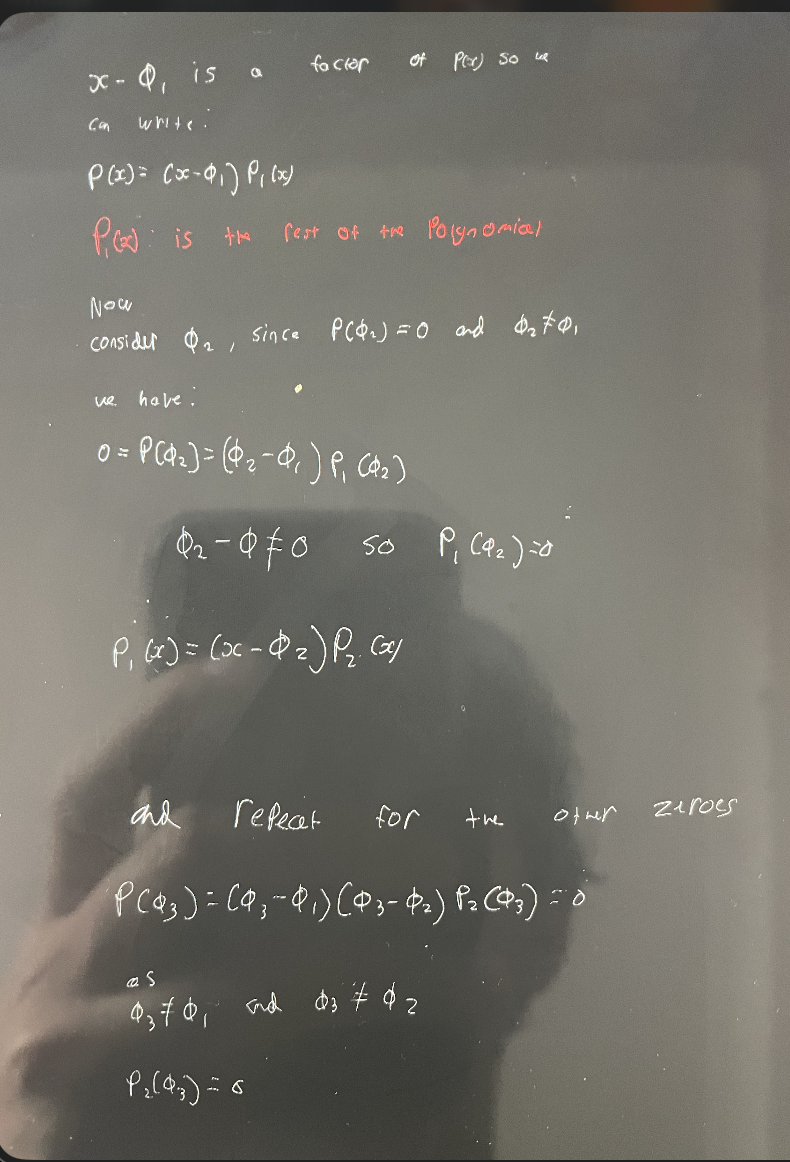 x - Φ₁ is a factor of P(x) so we
can write:
P(x) = (x-Φ₁) P₁(x)
P₁(x): is the rest of the Polynomial
Now
consider Φ₂, since P(Φ₂) = 0 and Φ₂ ≠ Φ₁
we have:
0 = P(Φ₂) = (Φ₂ - Φ₁) P₁(Φ₂)
Φ₂ - Φ ≠ 0 so P₁(Φ₂) = 0
P₁(x) = (x - Φ₂) P₂(x)
and repeat for the other zeroes
P(Φ₃) = (Φ₃ - Φ₁)(Φ₃ - Φ₂) P₂(Φ₃) = 0
as
Φ₃ ≠ Φ₁ and Φ₃ ≠ Φ₂
P₂(Φ₃) = 0